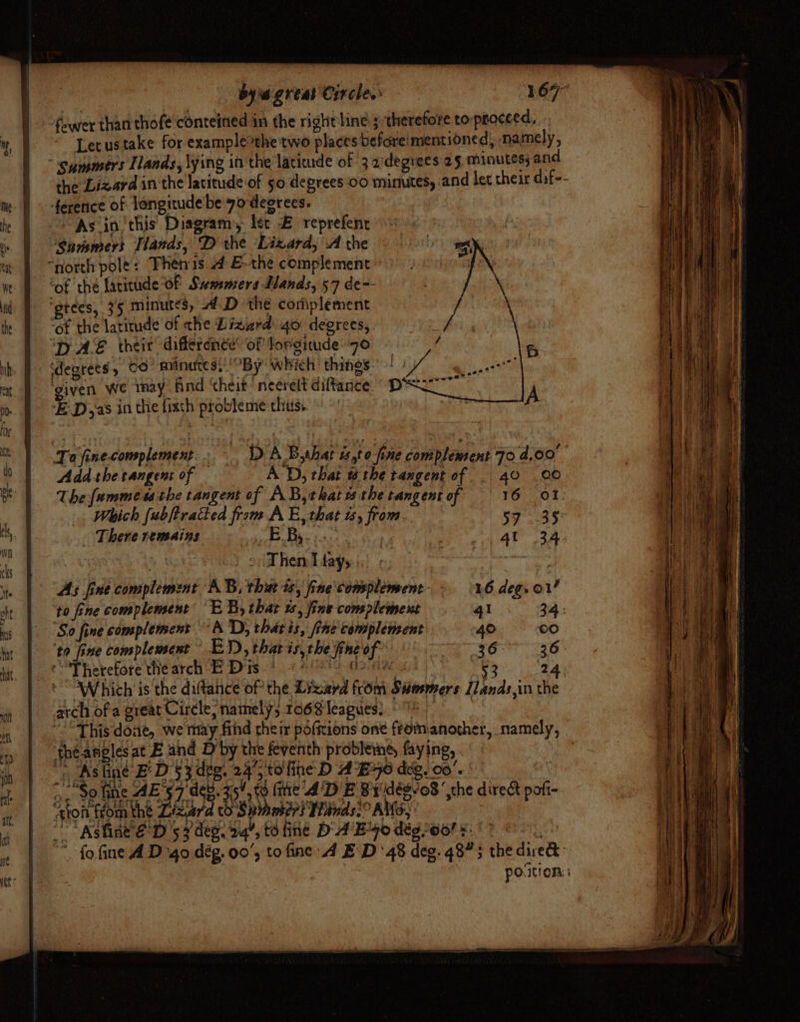 by a great Circle. 167
fewer than those conteined in the right line; therefore to proceed.
Let us take for example the two places before mentioned, namely,
Summers Ilands, lying in the latitude of 32 degrees 25 minutes, and
the Lizard in the latitude of 50 degrees 00 minutes, and let their dif-
ference of longitude be 70 degrees.
As in this Diagram, let E represent
Summers Ilands, D the Lizard, A the
north pole: Then is A E the complement
of the latitude of Summers Ilands, 57 de-
grees, 35 minutes, A D the complement
of the latitude of the Lizard 40 degrees,
D A E their difference of longitude 70
degrees, 00 minutes. By which things
given we may find their neerest distance
E D, as in the sixth probleme thus.
E
B
D
A
To sine complement D A B, that is, to sine complement 70 d.00'
Add the tangent of A D, that is the tangent of 40 00
The summe is the tangent of A B, that is the tangent of 16 01
Which substracted from A E, that is, from 57 35
There remains E B, 41 34
Then I say,
As sine complement A B, that is, sine complement 16 deg. 01'
to sine complement E B, that is, sine complement 41 34
So sine complement A D, that is, sine complement 40 00
to sine complement E D, that is, the sine of 36 36
Therefore the arch E D is 53 24
Which is the distance of the Lizard from Summers Ilands, in the
arch of a great Circle, namely, 1068 leagues.
This done, we may find their positions one from another, namely,
the angles at E and D by the seventh probleme, saying,
As sine E D 53 deg. 24', to sine D A E 70 deg. 00'.
So sine A E 57 deg. 35', to sine A D E 81 deg. 08', the direct posi-
tion from the Lizard to Summers Ilands. Also,
As sine E D 53 deg. 24', to sine D A E 70 deg. 00':
so sine A D 40 deg. 00', to sine A E D 48 deg. 48'; the direct
position